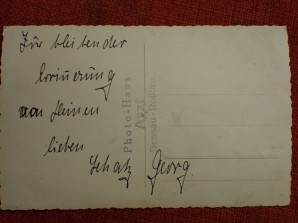 Zur bleibender
Erinnerung
von Deinen
lieben
Schatz Georg.
Photo-Haus